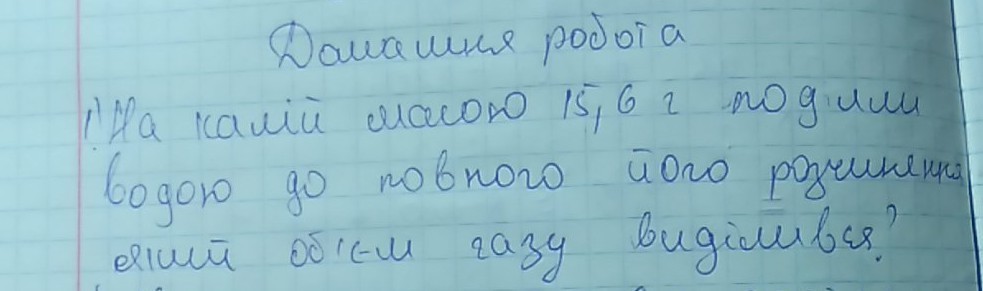 Домашня робота
1) На калій масою 15,6 г подіяли
водою до повного його розчинення
який об'єм газу виділився?